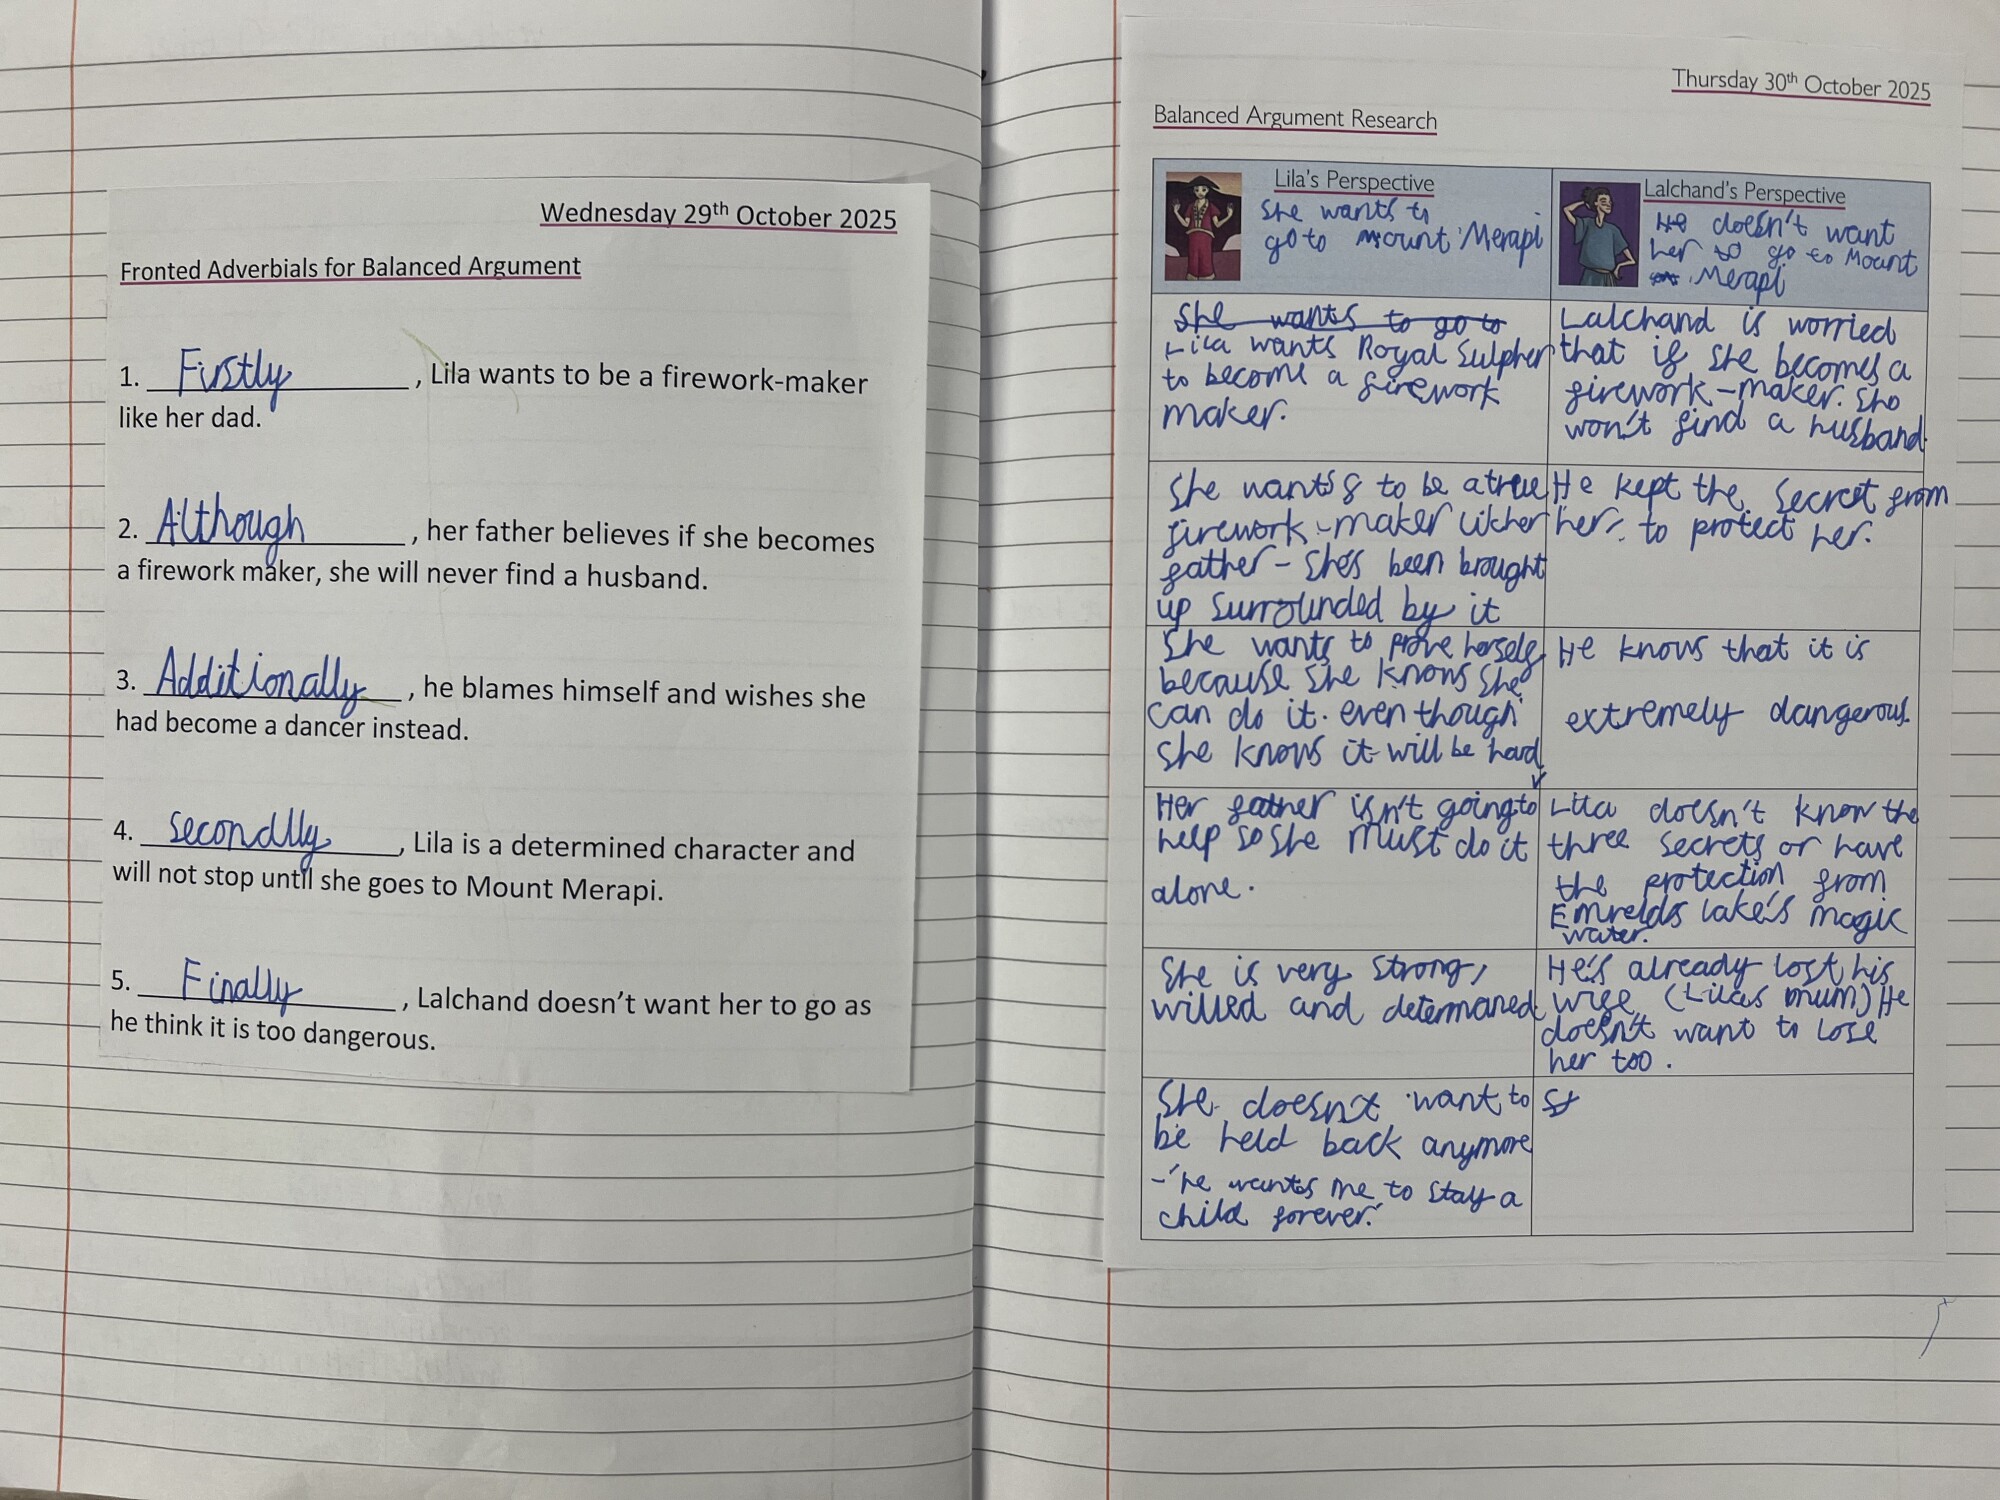 Wednesday 29th October 2025
Fronted Adverbials for Balanced Argument
1. Firstly, Lila wants to be a firework-maker
like her dad.
2. Although, her father believes if she becomes
a firework maker, she will never find a husband.
3. Additionally, he blames himself and wishes she
had become a dancer instead.
4. Secondlly, Lila is a determined character and
will not stop until she goes to Mount Merapi.
5. Finally, Lalchand doesn't want her to go as
he think it is too dangerous.
Thursday 30th October 2025
Balanced Argument Research
Lila's Perspective
She wants to
go to mount Merapi
Lalchand's Perspective
He doesn't want
her to go to Mount
Merapi
She wants to go to
Lila wants Royal Sulpher
to become a firework
maker.
Lalchand is worried
that if she becomes a
firework-maker. She
won't find a husband
She wants to be a true
firework-maker likher
father - she's been brought
up surrounded by it
He kept the secret from
her, to protect her.
She wants to prove herself
because she knows she
can do it. even though
she knows it will be hard
He knows that it is
extremely dangerous.
Her father isn't going to
help so she must do it
alone.
Lila doesn't know the
three secrets or have
the protection from
Emrelds lake's magic
water.
She is very strong,
willed and determaned
He's already lost his
wife (Lilas mum) He
doesn't want to lose
her too.
She doesn't want to
be held back anymore
-'he wants me to stay a
child forever.'